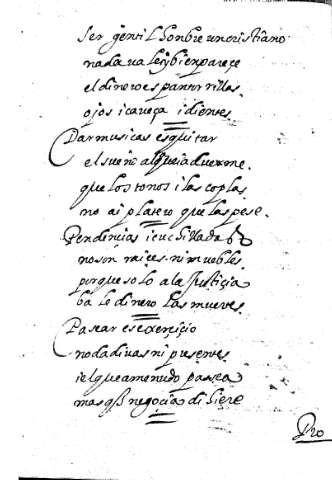 ser gentil honbre un cristiano
nada vale y bien pareçe
el dinero es pantorrillas
ojos i caveça i dientes
Dar musicas es quitar
el sueño al que ia duerme
que los tonos i las coplas
no ai platero que las pese
Pendençias i cuchilladas
no son raiçes ni muebles
porque solo a la Justiçia
ba le dinero las mueves
Pasear es exerçiçio
no dadivas ni presentes
i el que a menudo pasea
mas q negoçia dijiere
Pro